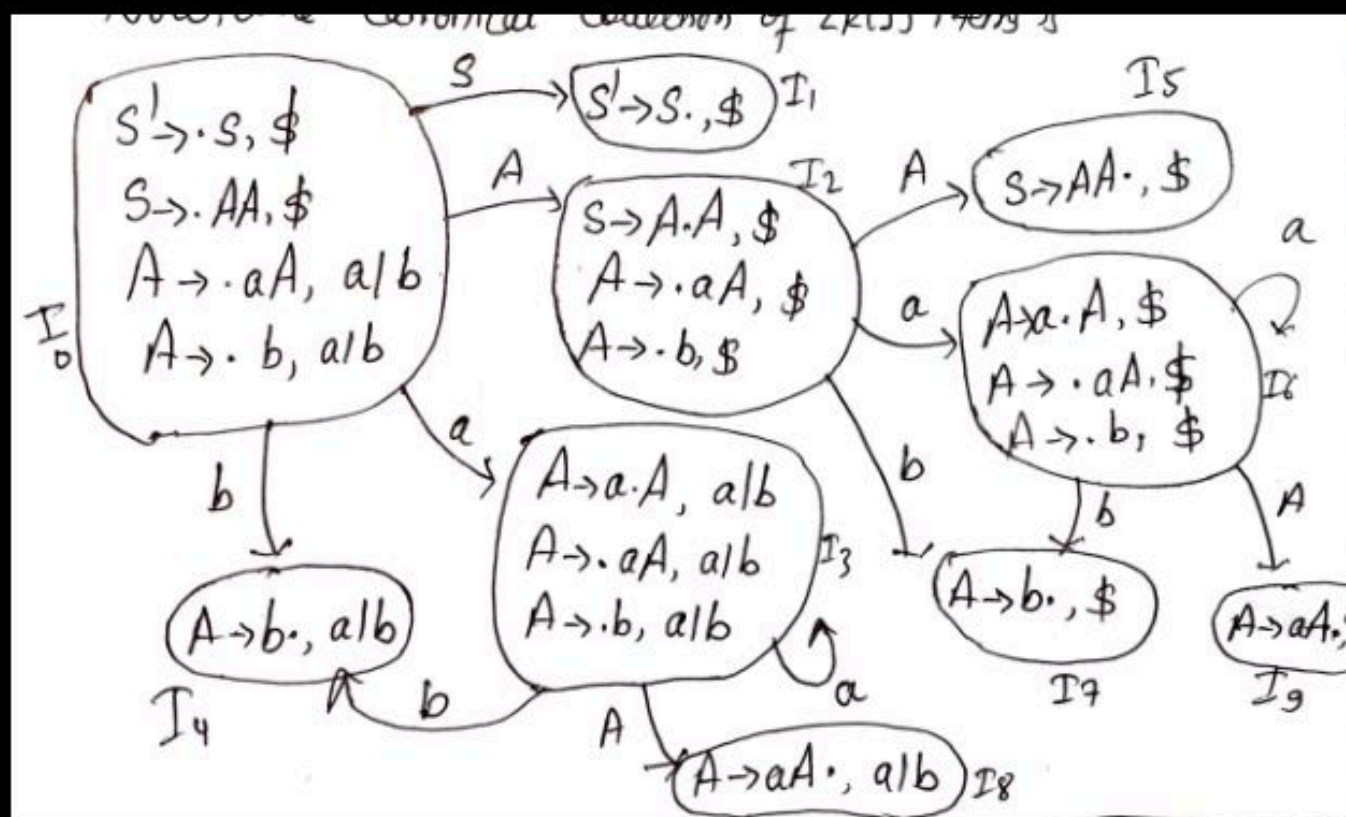 Canonical Collection of LR(1) items
S' → ·S, $
S → ·AA, $
A → ·aA, a|b
A → ·b, a|b
I0
S
S' → S·, $
I1
A
I2
S → A·A, $
A → ·aA, $
A → ·b, $
A
I5
S → AA·, $
a
a
A → a·A, $
A → ·aA, $
A → ·b, $
I6
b
a
b
b
A
A → a·A, a|b
A → ·aA, a|b
A → ·b, a|b
I3
a
A → b·, a|b
I4
b
A
A → b·, $
I7
A → aA·,
I9
A → aA·, a|b
I8